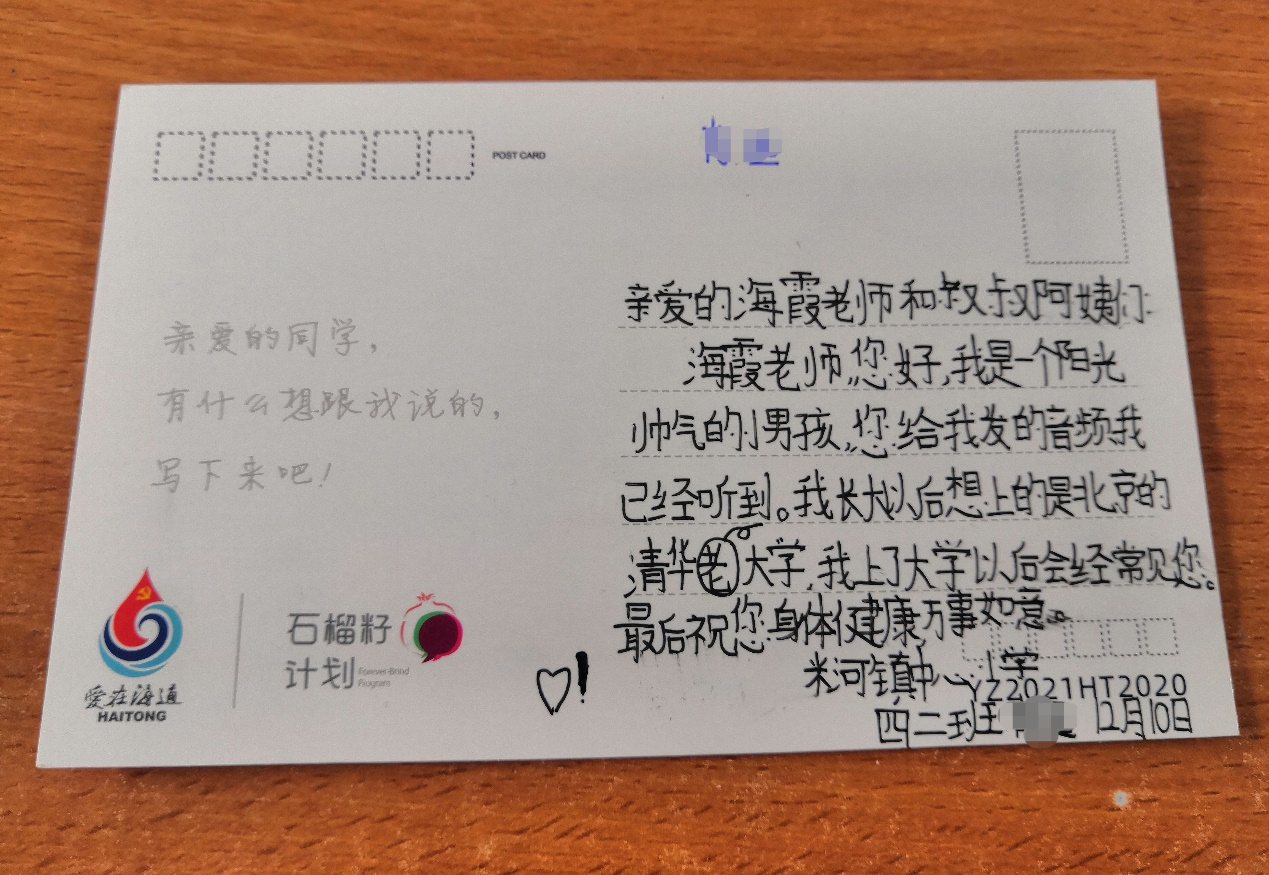 POST CARD
亲爱的同学，
有什么想跟我说的，
写下来吧！
爱在海通
HAITONG
石榴籽
计划
Forever-Bond
Program
亲爱的海霞老师和叔叔阿姨们:
海霞老师,您好,我是一个阳光
帅气的小男孩,您给我发的音频我
已经听到。我长大以后想上的是北京的
清华老大学,我上了大学以后会经常见您。
最后祝您身体健康万事如意。
米河镇中心小学
YZ2021HT2020
四二班王 12月10日